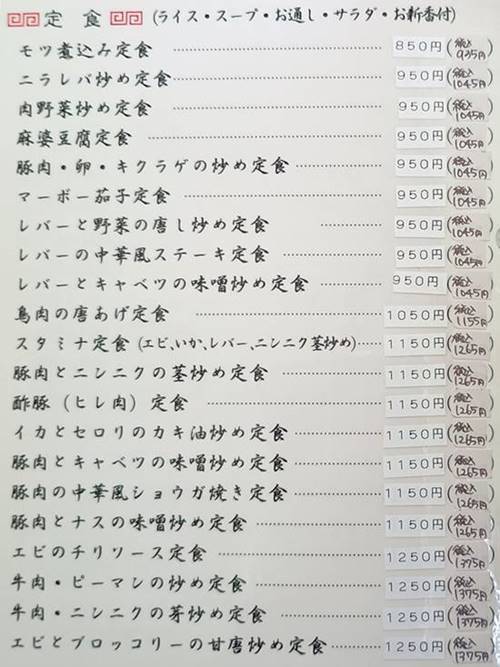 定 食 (ライス・スープ・お通し・サラダ・お新香付)
モツ煮込み定食 850円 (税込935円)
ニラレバ炒め定食 950円 (税込1045円)
肉野菜炒め定食 950円 (税込1045円)
麻婆豆腐定食 950円 (税込1045円)
豚肉・卵・キクラゲの炒め定食 950円 (税込1045円)
マーボー茄子定食 950円 (税込1045円)
レバーと野菜の唐し炒め定食 950円 (税込1045円)
レバーの中華風ステーキ定食 950円 (税込1045円)
レバーとキャベツの味噌炒め定食 950円 (税込1045円)
鳥肉の唐あげ定食 1050円 (税込1155円)
スタミナ定食 (エビ、いか、レバー、ニンニク茎炒め) 1150円 (税込1265円)
豚肉とニンニクの茎炒め定食 1150円 (税込1265円)
酢豚 (ヒレ肉) 定食 1150円 (税込1265円)
イカとセロリのカキ油炒め定食 1150円 (税込1265円)
豚肉とキャベツの味噌炒め定食 1150円 (税込1265円)
豚肉の中華風ショウガ焼き定食 1150円 (税込1265円)
豚肉とナスの味噌炒め定食 1150円 (税込1265円)
エビのチリソース定食 1250円 (税込1375円)
牛肉・ピーマンの炒め定食 1250円 (税込1375円)
牛肉・ニンニクの芽炒め定食 1250円 (税込1375円)
エビとブロッコリーの甘唐炒め定食 1250円 (税込1375円)